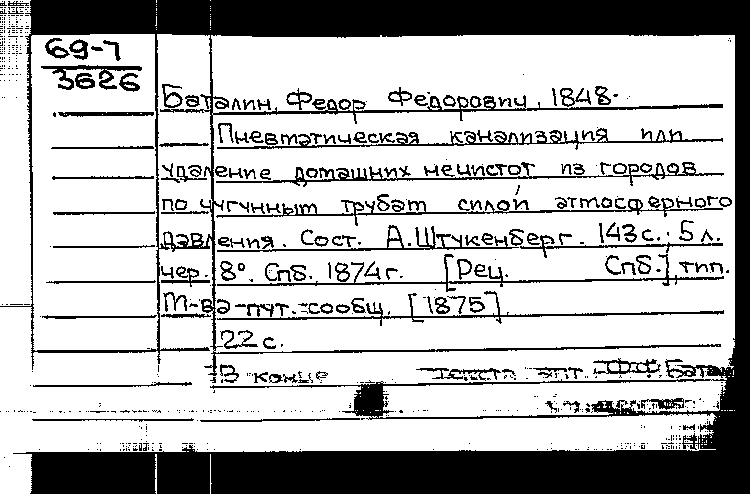 69-7
3626
Баталин, Федор Федорович, 1848-
Пневматическая канализация или
удаление домашних нечистот из городов
по чугунным трубам силой атмосферного
давления. Сост. А. Штукенберг. 143 с.; 5 л.
чер. 8°. Спб., 1874 г. [Рец. Спб.], тип.
М-ва пут. сообщ. [1875].
22 с.
В конце текста авт. Ф.Ф. Батал